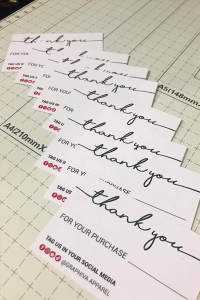 thank you
FOR YOU
thank you
FOR YO
thank you
TAG US I
FOR
thank you
TAG US IN
FOR YO
thank you
TAG U
FOR
thank you
TAG US
FOR Y
thank you
TAG UT
thank you
FOR YOUR PURCHASE
TAG US IN YOUR SOCIAL MEDIA
@GRAPHIVA APPAREL
A5(148mmX
A4(210mmX